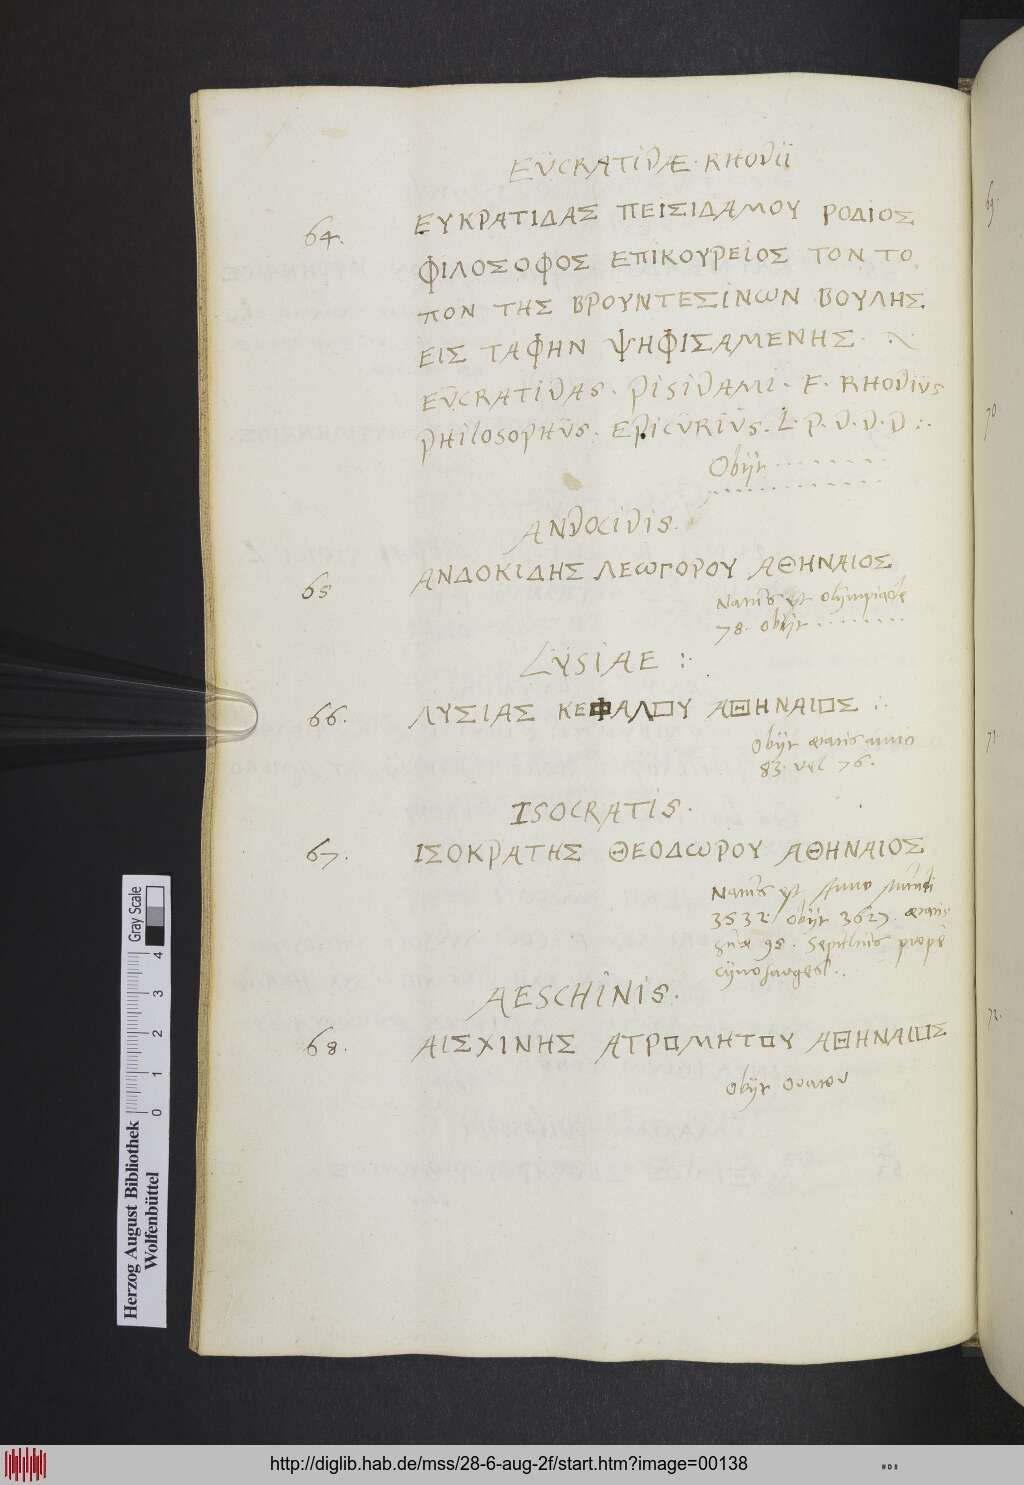 EUCRATIDAE · RHODII
64.
ΕΥΚΡΑΤΙΔΑΣ ΠΕΙΣΙΔΑΜΟΥ ΡΟΔΙΟΣ
ΦΙΛΟΣΟΦΟΣ ΕΠΙΚΟΥΡΕΙΟΣ ΤΟΝ ΤΟ
ΠΟΝ ΤΗΣ ΒΡΟΥΝΤΕΣΙΝΩΝ ΒΟΥΛΗΣ
ΕΙΣ ΤΑΦΗΝ ΨΗΦΙΣΑΜΕΝΗΣ ·
EUCRATIDAS · PISIDAMI · F · RHODIUS
PHILOSOPHUS · EPICURIUS · L · P · D · D · D :.
Obijt ........
..............
ANDOCIDIS.
65
ΑΝΔΟΚΙΔΗΣ ΛΕΩΓΟΡΟΥ ΑΘΗΝΑΙΟΣ
Natus est Olympiade
78. obijt ........
LYSIAE :.
66.
ΛΥΣΙΑΣ ΚΕΦΑΛΟΥ ΑΘΗΝΑΙΟΣ :.
Obijt aetatis anno
83. vel 76.
ISOCRATIS.
67.
ΙΣΟΚΡΑΤΗΣ ΘΕΟΔΩΡΟΥ ΑΘΗΝΑΙΟΣ
Natus est Anno Mundi
3532. Obijt 3627. aetatis
suae 98. Sepultus propè
cynosarges ..
AESCHINIS.
68.
ΑΙΣΧΙΝΗΣ ΑΤΡΟΜΗΤΟΥ ΑΘΗΝΑΙΟΣ
Obijt
69.
70.
71.
72.
Gray Scale
0 1 2 3 4
Herzog August Bibliothek
Wolfenbüttel
http://diglib.hab.de/mss/28-6-aug-2f/start.htm?image=00138